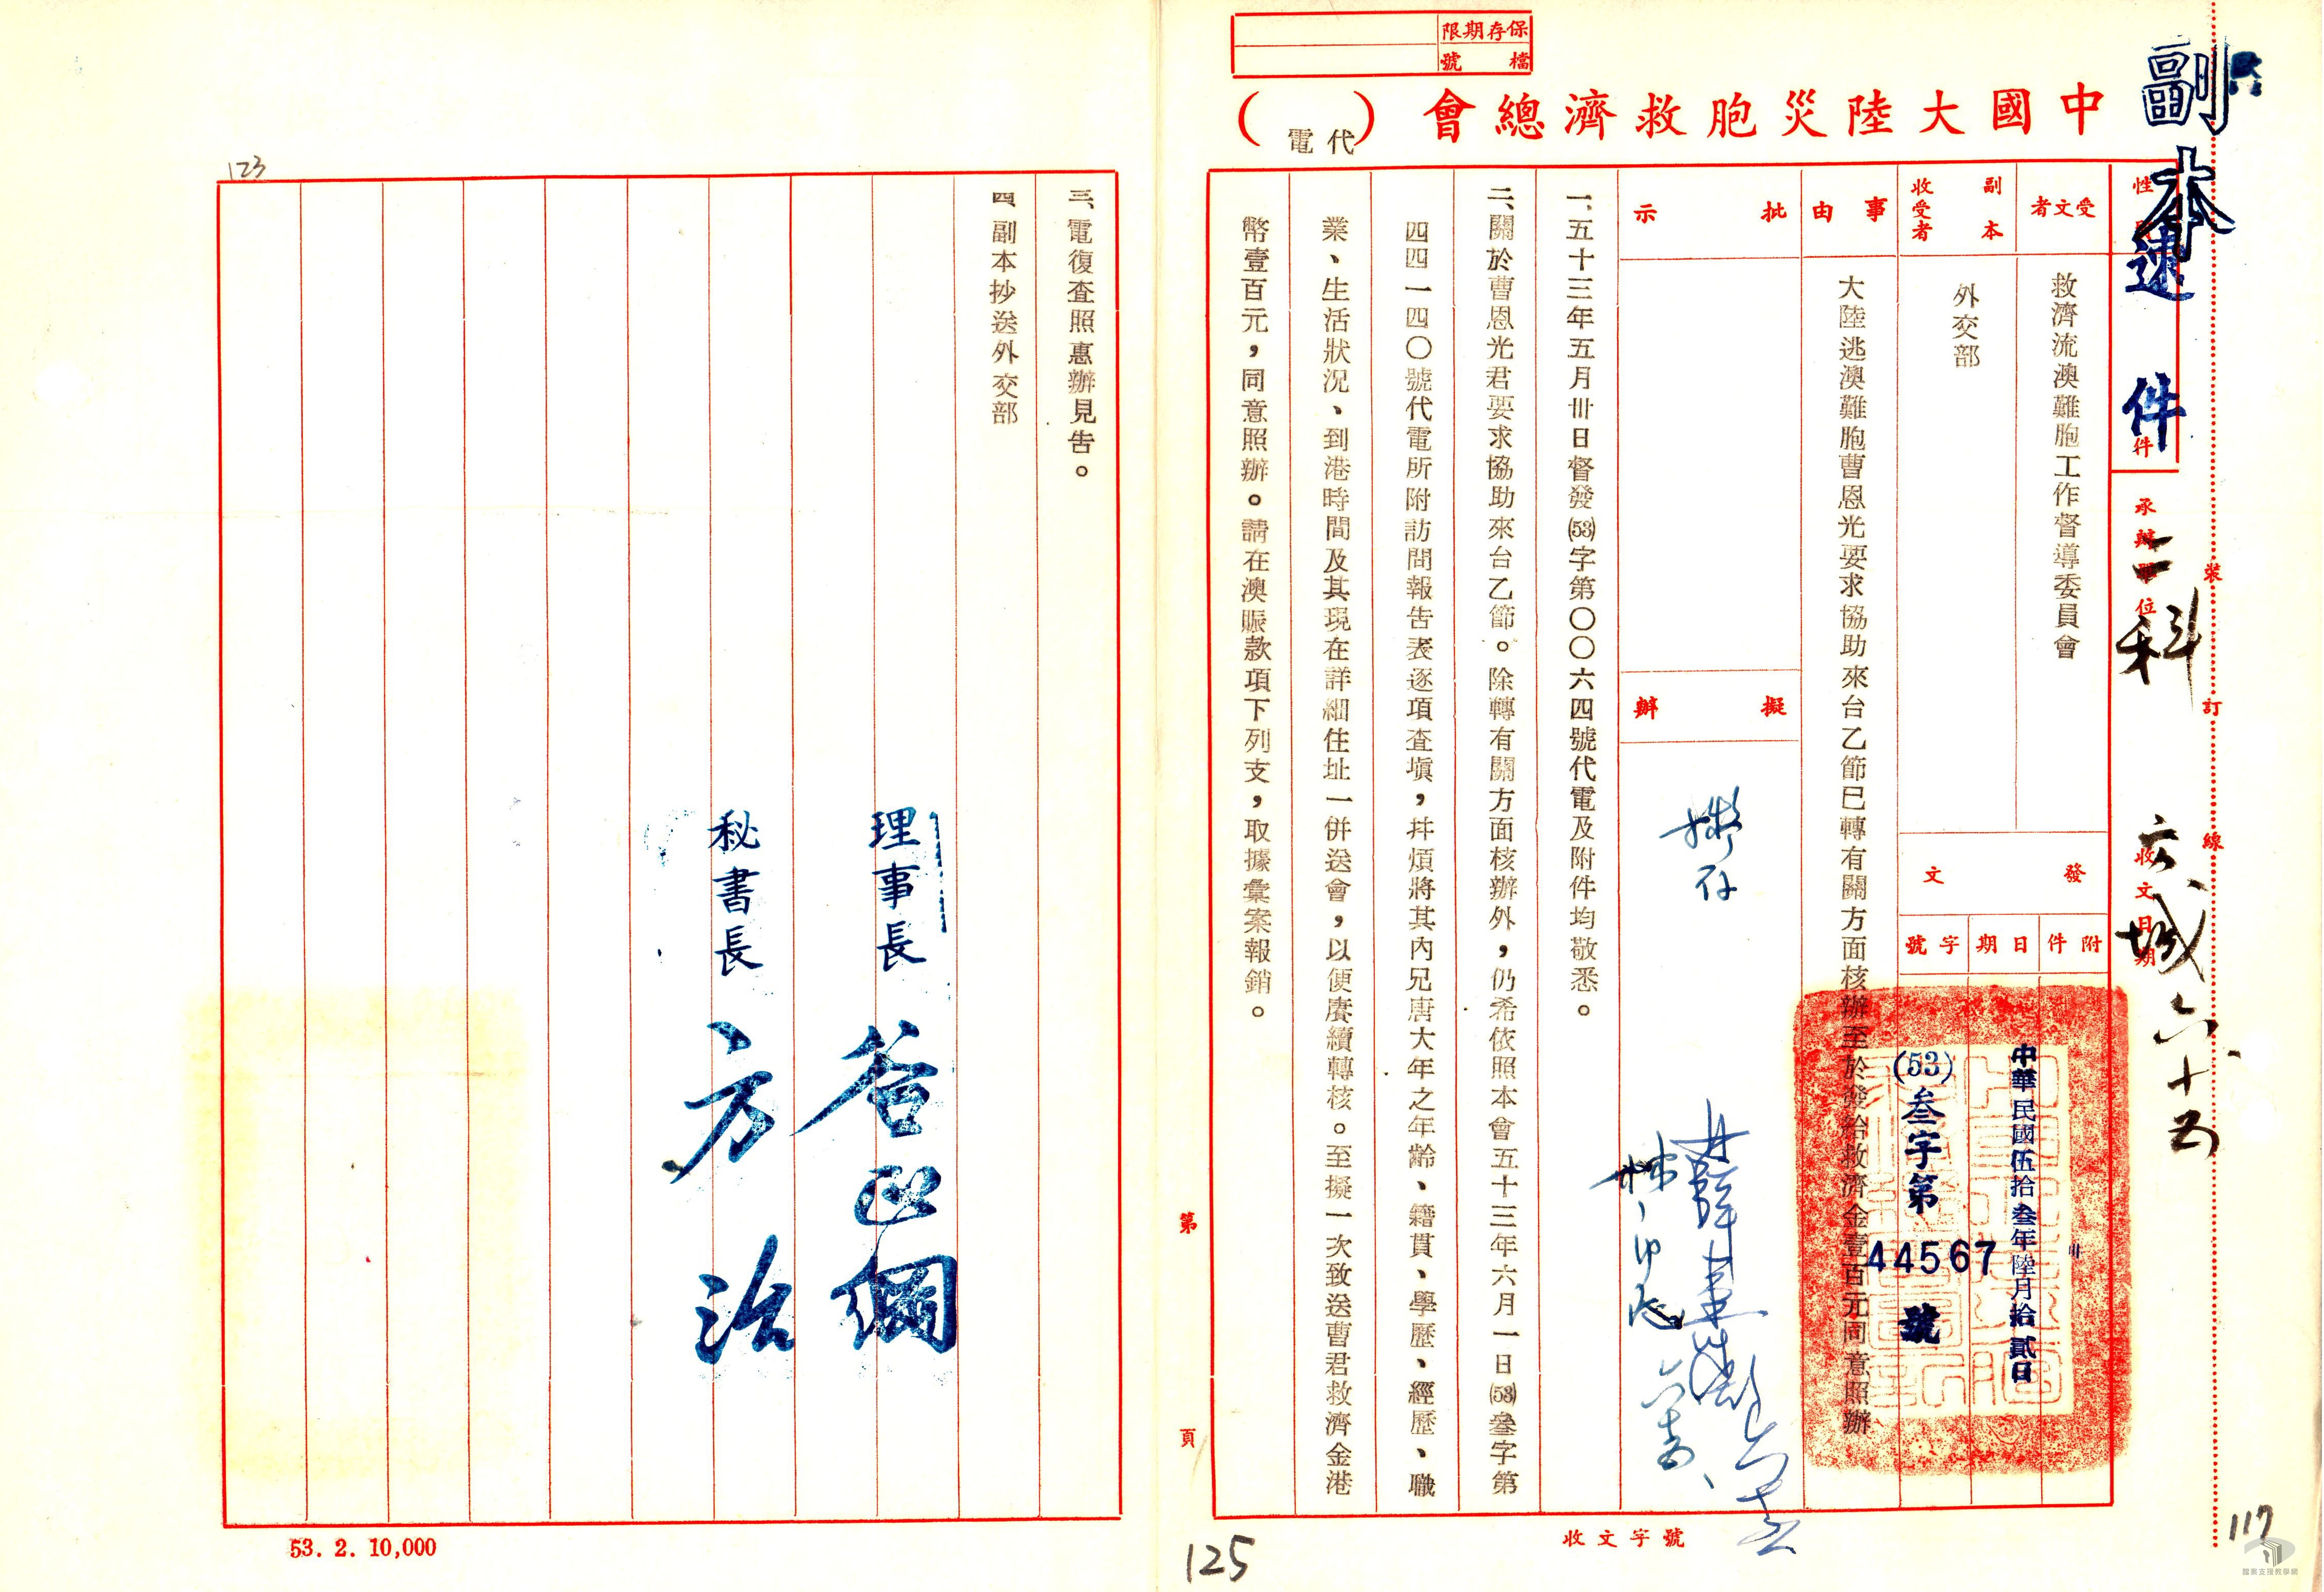 保存期限
檔號
副本
中國大陸災胞救濟總會（代電）
速件
二科
承辦單位
收文日期
裝訂線
受文者
救濟流澳難胞工作督導委員會
副本收受者
外交部
發文
附件
日期
字號
中華民國伍拾叁年陸月拾貳日
(53)叁字第44567號
事由
大陸逃澳難胞曹恩光要求協助來台乙節已轉有關方面核辦至於發給救濟金壹百元同意照辦
批示
擬辦
擬存
一、五十三年五月卅日督發(53)字第〇〇六四號代電及附件均敬悉。
二、關於曹恩光君要求協助來台乙節。除轉有關方面核辦外，仍希依照本會五十三年六月一日(53)叁字第
四四一四〇號代電所附訪問報告表逐項查塡，幷煩將其內兄唐大年之年齡、籍貫、學歷、經歷、職
業、生活狀況、到港時間及其現在詳細住址一併送會，以便賡續轉核。至擬一次致送曹君救濟金港
幣壹百元，同意照辦。請在澳賑款項下列支，取據彙案報銷。
第 頁
收文字號
125
117
三、電復查照惠辦見告。
四、副本抄送外交部
理事長 谷正綱
秘書長 方治
123
53. 2. 10,000
檔案支援教學網